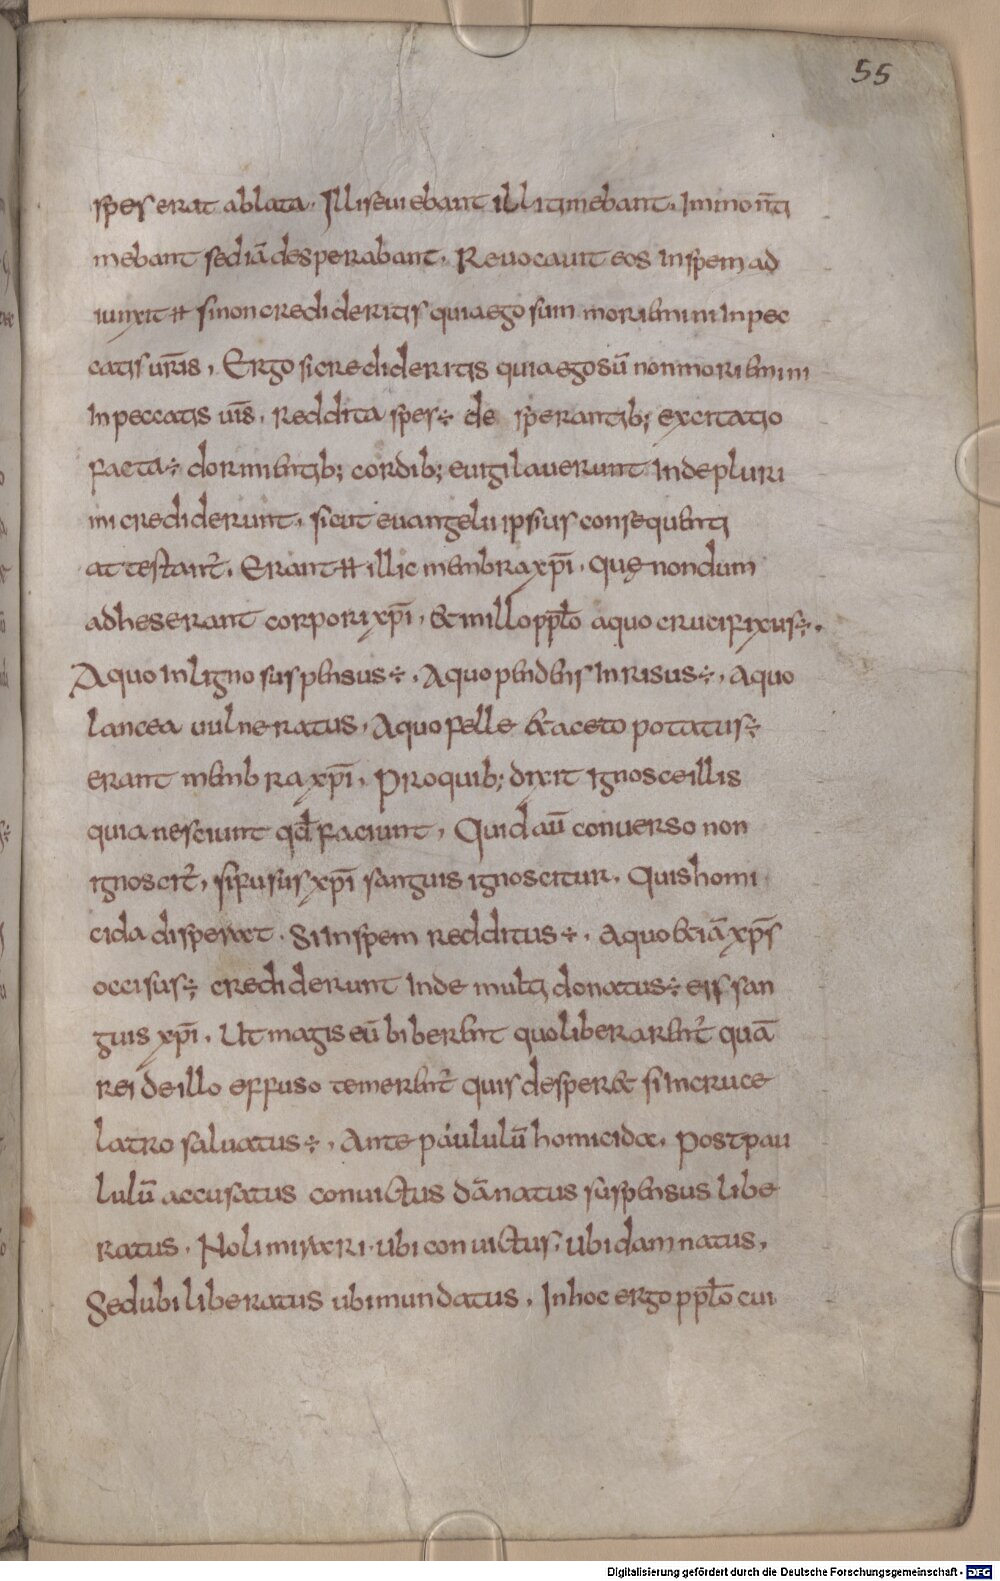 55
spes erat ablata. Illi seuiebant illi timebant. Immo ñ ti
mebant sed iā desperabant. Reuocauit eos in spem ad
iunxit ⁊ si non credideritis quia ego sum moriemini in pec
catis ur̄is. Ergo si credideritis quia ego sū non moriemini
in peccatis uīs. reddita spes ÷ de sperantib; excitatio
facta ÷ dormientib; cordib; euigilauerunt inde pluri
mi crediderunt. sicut euangelii ipsius consequentia
attestant̄. Erant ⁊ illic membra xp̄i. quę nondum
adheserant corpori xp̄i. & in illo pp̄lo a quo crucifixus ÷.
A quo in ligno suspensus ÷. A quo pendens inrisus ÷. a quo
lancea uulneratus. A quo felle & aceto potatus ÷
erant membra xp̄i. Pro quib; dixit ignosce illis
quia nesciunt qd̄ faciunt. Quid aū conuerso non
ignoscit̄. si fusus xp̄i sanguis ignoscitur. Quis homi
cida disperaret. Si in spem redditus ÷. a quo &iā xp̄s
occisus ÷ crediderunt inde multi donatus ÷ eis san
guis xp̄i. Ut magis eū biberent quo liberarent̄ quā
rei de illo effuso tenerent̄ quis desper& si in cruce
latro saluatus ÷. Ante paululū homicida. Post pau
lulū accusatus conuictus dānatus suspensus libe
ratus. Noli mirari. ubi conuictus. ubi damnatus.
Sed ubi liberatus ubi mundatus. In hoc ergo pp̄lo cui
Digitalisierung gefördert durch die Deutsche Forschungsgemeinschaft - DFG